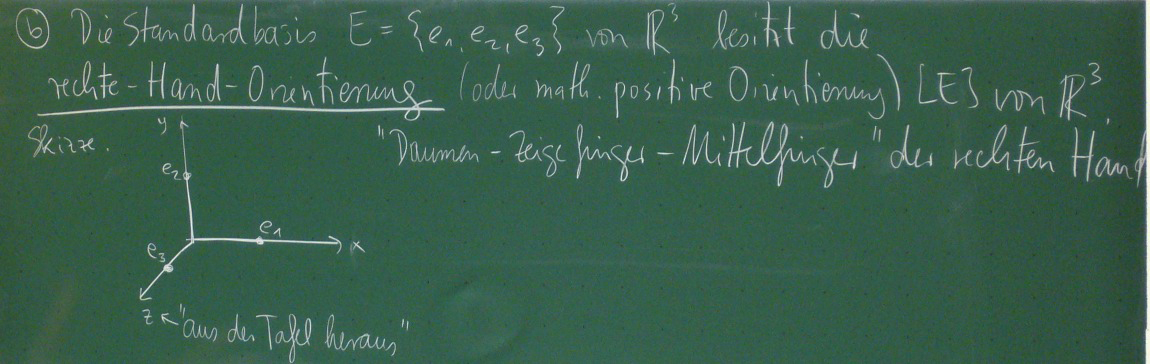 ⓑ Die Standardbasis E = {e₁, e₂, e₃} von ℝ³ besitzt die
rechte-Hand-Orientierung (oder math. positive Orientierung) [E] von ℝ³.
Skizze.
"Daumen - Zeigefinger - Mittelfinger" der rechten Hand
y
e₂
e₁
x
e₃
z ↖ "aus der Tafel heraus"